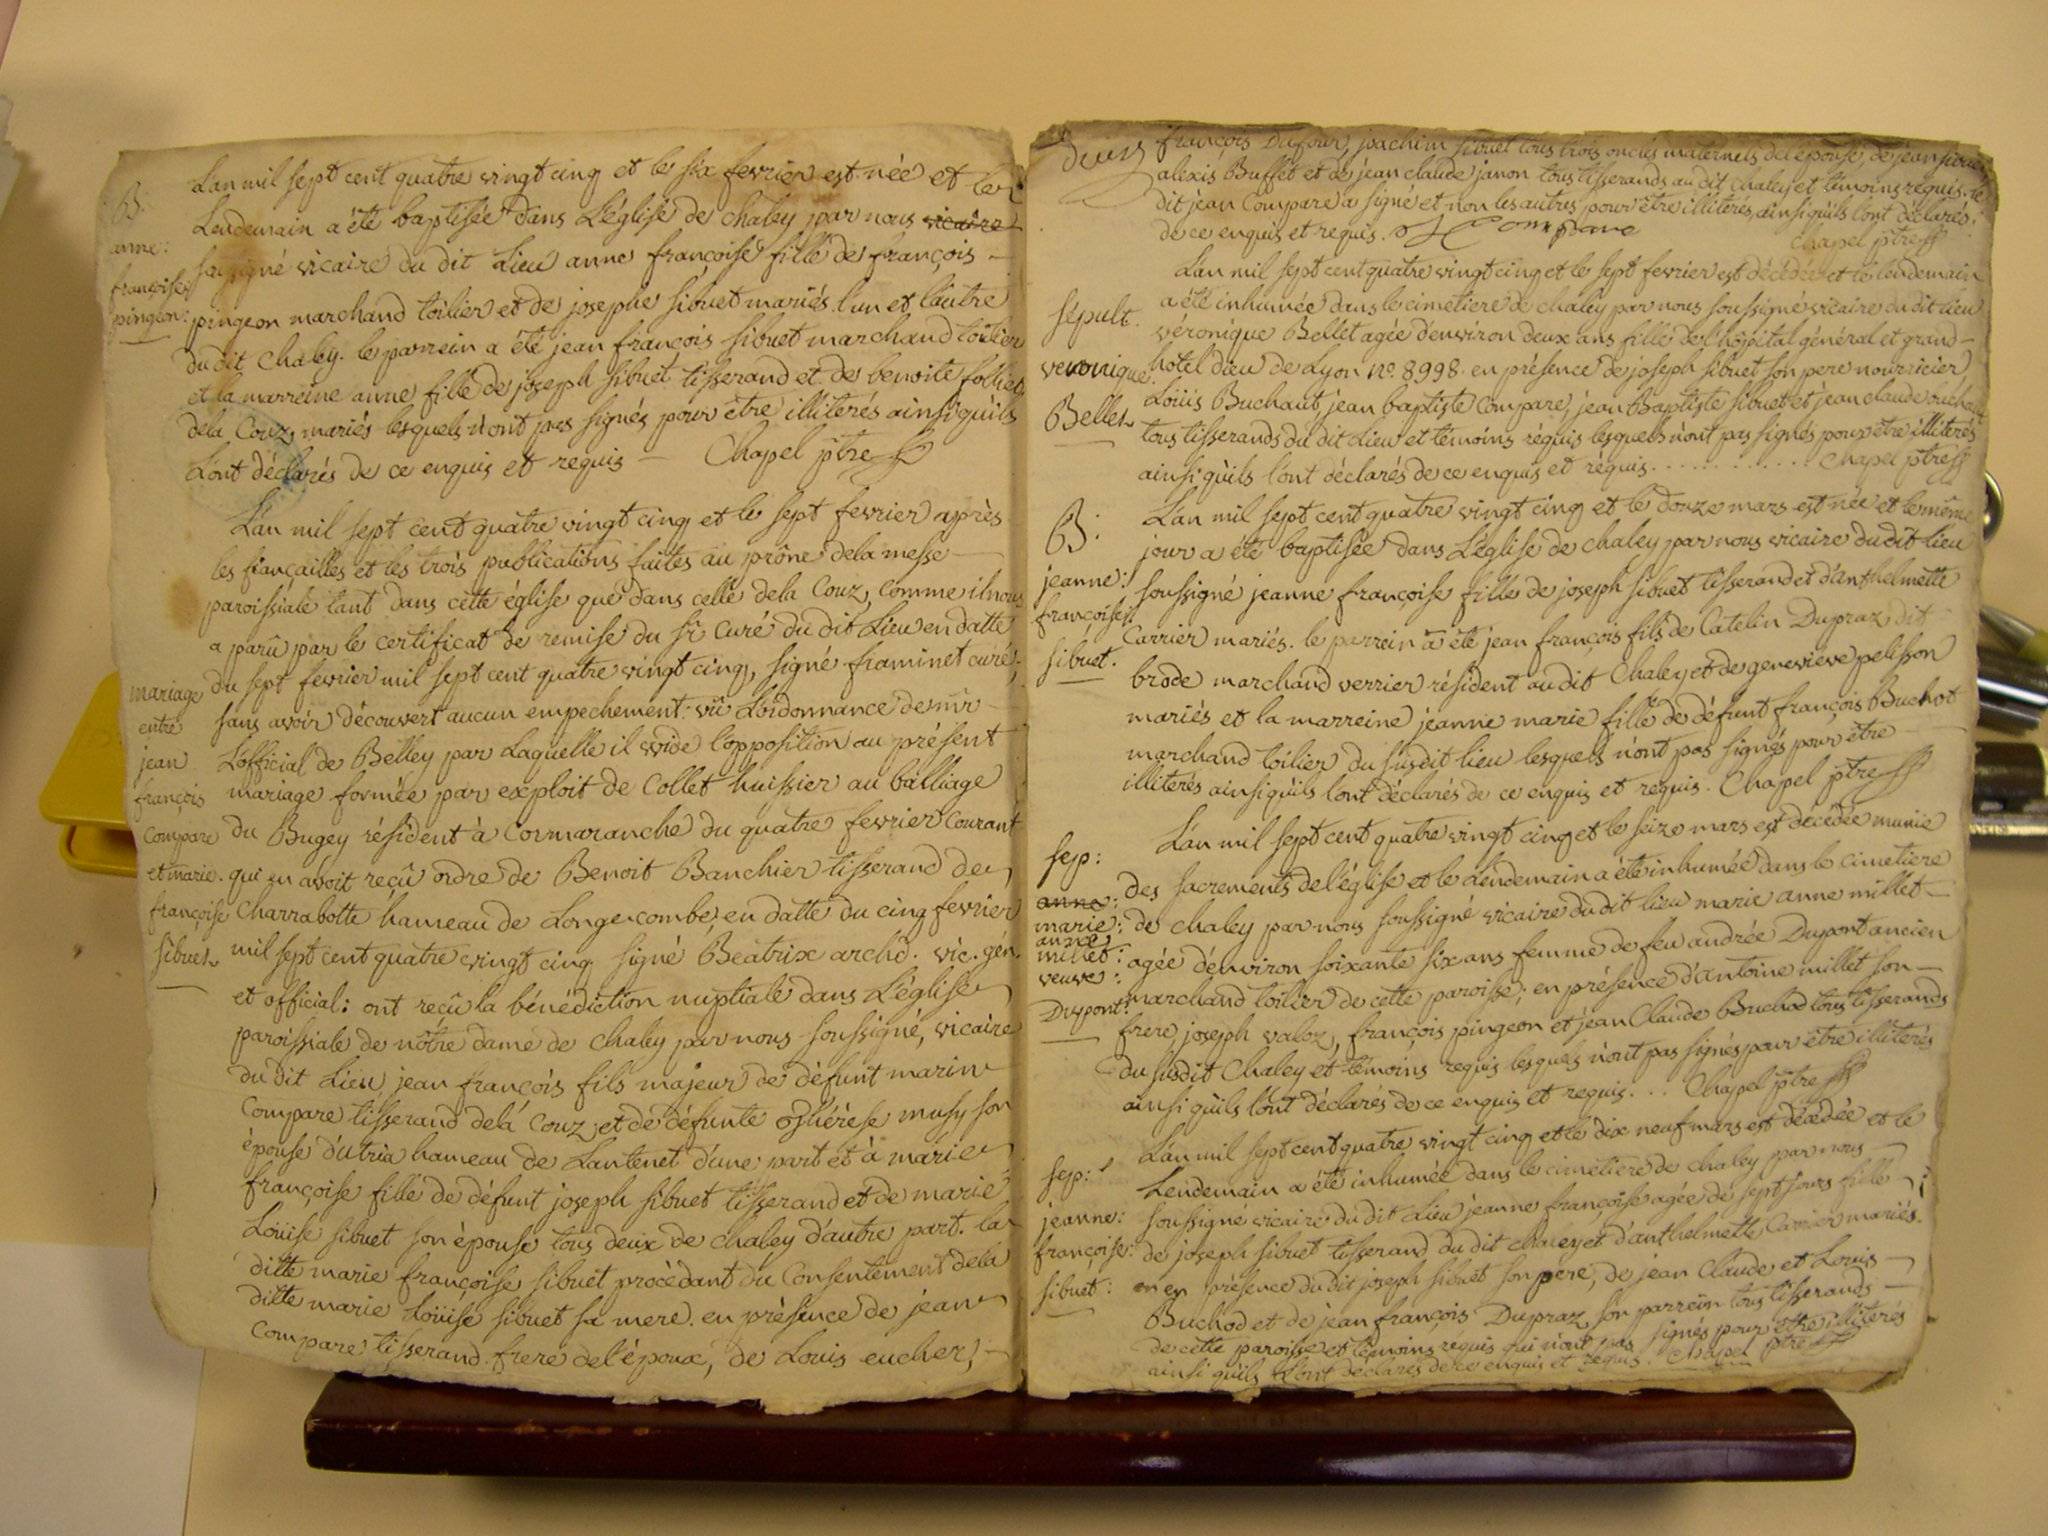 B.
anne:
françoise
pingeon:
L'an mil sept cent quatre vingt cinq et le six fevrier est née et le
Lendemain a été baptisée dans L'église de chaley par nous vicaire
soussigné vicaire du dit Lieu anne françoise fille de françois
pingeon marchand toilier et de josephe sibuet mariés l'un et l'autre
du dit Chaley. le parrein a été jean françois sibuet marchand toilier
et la marreine anne fille de joseph sibuet tisserand et de benoite follies
dela Couz mariés lesquels n'ont pas signés pour être illiterés ainsi qu'ils
L'ont déclarés de ce enquis et requis — Chapel ptre
mariage
entre
jean
françois
compare
et marie.
françoise
sibuet
L'an mil sept cent quatre vingt cinq et le sept fevrier après
les fiançailles et les trois publications faites au prône dela messe
paroissiale tant dans cette église que dans celle dela Couz, comme il nous
a parû par le certificat de remise du sr. Curé du dit Lieu en datte
du sept fevrier mil sept cent quatre vingt cinq, signé framinet curé;
sans avoir découvert aucun empechement: vû L'ordonnance de mr
L'official de Belley par Laquelle il vuide l'opposition au présent
mariage formée par exploit de Collet huissier au balliage
du Bugey résident à Cormaranche du quatre fevrier Courant
qui en avoit reçû ordre de Benoit Banchier tisserand de
Charrabotte hameau de Longecombe, en datte du cinq fevrier
mil sept cent quatre vingt cinq signé Beatrix archid. vic. gén.
et official: ont reçû la bénédiction nuptiale dans L'église
paroissiale de nôtre dame de Chaley par nous soussigné, vicaire
du dit Lieu jean françois fils majeur de défunt marin
Compare tisserand dela Couz, et de défunte thérèse musy son
épouse d'utria hameau de Lantenet d'une part et à marie
françoise fille de défunt joseph sibuet tisserand et de marie
Loüise sibuet son épouse tous deux de chaley d'autre part. la
ditte marie françoise sibuet procèdant du Consentement dela
ditte marie Loüise sibuet sa mere. en présence de jean
Compare tisserand frere del'époux, de Louis eucher,
françois Dufour, joachim sibuet tous trois oncles maternels del'épouse, de jean sibuet
alexis Buffet et de jean claude janon tous tisserands au dit Chaley et témoins requis. le
dit jean Compare a signé et non les autres pour être illiterés ainsi qu'ils l'ont déclarés;
de ce enquis et requis. Compare
Chapel ptre
sepult.
veronique
Bellet
L'an mil sept cent quatre vingt cinq et le sept fevrier est décédée et le lendemain
a été inhumée dans le cimetiere de chaley par nous soussigné vicaire du dit Lieu
véronique Bellet agée d'environ deux ans fille del'hôpital général et grand
hotel dieu de Lyon no. 8998. en présence de joseph sibuet son pere nourricier
Loüis Buchaut, jean baptiste Compare, jean Baptiste sibuet et jean claude buchaut
tous tisserands du dit Lieu et témoins réquis lesquels n'ont pas signés pour être illiterés
ainsi qu'ils l'ont déclarés de ce enquis et réquis. . . . . . . . . . . . Chapel ptre
B.
jeanne:
françoise:
sibuet.
L'an mil sept cent quatre vingt cinq et le douze mars est née et le même
jour a été baptisée dans L'église de chaley par nous vicaire du dit lieu
soussigné jeanne françoise fille de joseph sibuet tisserand et d'anthelmette
Carrier mariés. le parrein a été jean françois fils de Catelin Dupraz dit
brode marchand verrier résident au dit Chaley et de genevieve pelisson
mariés et la marreine jeanne marie fille de défunt françois Buchot
marchand toilier du susdit lieu lesquels n'ont pas signés pour être
illiterés ainsi qu'ils l'ont déclarés de ce enquis et requis. Chapel ptre
sep:
anne:
marie:
anne
millet:
veuve:
Dupont:
L'an mil sept cent quatre vingt cinq et le seize mars est décédée munie
des sacrements del'église et le Lendemain a été inhumée dans le cimetiere
de chaley par nous soussigné vicaire du dit lieu marie anne millet
agée d'environ soixante six ans femme de feu andrée Dupont ancien
marchand toilier de cette paroisse; en présence d'antoine millet son
frere joseph valoz, françois pingeon et jean Claude Buchod tous tisserands
du susdit Chaley et témoins requis lesquels n'ont pas signés pour être illiterés
ainsi qu'ils l'ont déclarés de ce enquis et requis. . . Chapel ptre
sep:
jeanne:
françoise:
sibuet:
L'an mil sept cent quatre vingt cinq et le dix neuf mars est décédée et le
Lendemain a été inhumée dans le cimetiere de chaley par nous
soussigné vicaire du dit Lieu jeanne françoise agée de sept jours fille
de joseph sibuet tisserand du dit chaley et d'anthelmette Carrier mariés.
en présence du dit joseph sibuet son pere, de jean Claude et Louis
Buchod et de jean françois Dupraz son parrein tous tisserands
de cette paroisse et témoins réquis qui n'ont pas signés pour être illiterés
ainsi qu'ils L'ont déclarés de ce enquis et requis. Chapel ptre